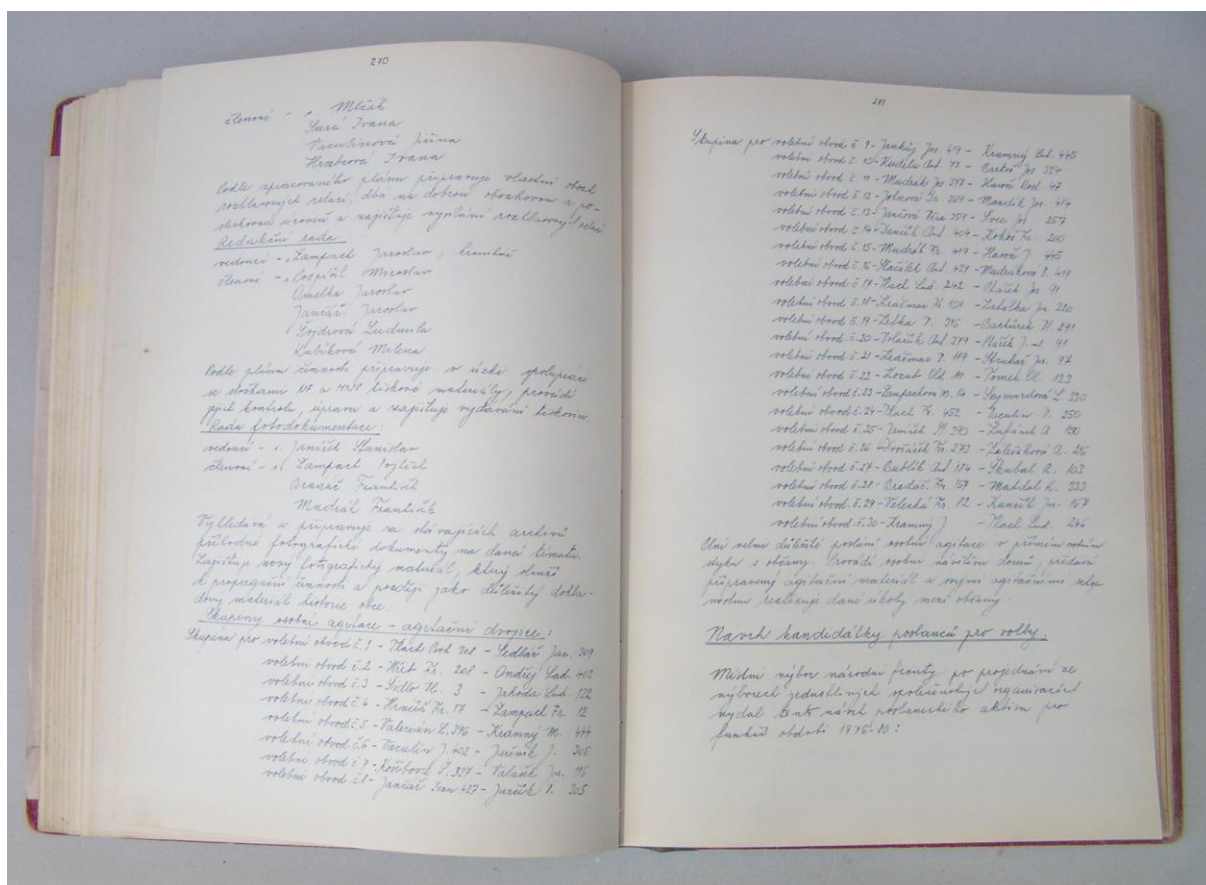 270
členové - Mlčák
Surá Ivana
Vaculínová Jiřina
Hrabcová Ivana
Podle zpracovaného plánu připravuje vlastní obsah
rozhlasových relací, dbá na dobrou obsahovou a po-
slechovou úroveň a zajišťuje vysílání rozhlasových relací
Redakční rada
vedoucí - s. Lampach Jaroslav, kronikář
členové - s. Pospíšil Miroslav
Omelka Jaroslav
Jančář Jaroslav
Šojdrová Ludmila
Kubíková Milena
Podle plánu činnosti připravuje v úzké spolupráci
se složkami NF a MNV tiskové materiály, provádí
jejich kontrolu, úpravu a zajišťuje vydávání tiskovin.
Rada fotodokumentace:
vedoucí - s. Janíček Stanislav
členové - s. Lampach Vojtěch
Bradáč František
Mudrák František
Vyhledává a připravuje ze stávajících archivů
příhodné fotografické dokumenty na dané témata.
Zajišťuje nový fotografický materiál, který slouží
k propagační činnosti a později jako důležitý dokla-
dový materiál historie obce.
Skupiny osobní agitace - agitační dvojice:
Skupina pro volební obvod č. 1 - Vlach Boh 208 - Sedlář Jar. 309
volební obvod č. 2 - Fr. 208 - Ondřej Lad. 403
volební obvod č. 3 - Sidlo M. 3 - Jahoda Lud. 122
volební obvod č. 4 - Hrnčíř Fr. 17 - Lampach Fr. 12
volební obvod č. 5 - Valerián L. 396 - Kramný M. 444
volební obvod č. 6 - Vaculín J. 402 - J. 306
volební obvod č. 7 - S. 327 - Valašík Jos. 116
volební obvod č. 8 - Jančář Ivan 427 - Jurčík V. 305
271
Skupina pro volební obvod č. 9 - Jos. 419 - Kramný Lad. 445
volební obvod č. 10 - Kudela Ant. 72 - Bartoš Jos. 324
volební obvod č. 11 - Mudrák Jos. 377 - Havrá Rod. 47
volební obvod č. 12 - 201 - Mandík Jos. 414
volební obvod č. 13 - Jančová Věra 351 - Švec Jos. 257
volební obvod č. 14 - Janíček Ant. 404 - Kokoš Fr. 200
volební obvod č. 15 - Mudrák Fr. 419 - J. 445
volební obvod č. 16 - Ant. 421 - Mudráková V. 419
volební obvod č. 17 - Vlach Lad. 242 - Ptáček Jos. 91
volební obvod č. 18 - Kračmar Fr. 101 - Labálka Jos. 220
volební obvod č. 19 - Letka P. 316 - Bartůněk M. 291
volební obvod č. 20 - Ant. 379 - J. 91
volební obvod č. 21 - Kračmar P. 119 - Jos. 97
volební obvod č. 22 - Vld. 111 - Tomek Ol. 123
volební obvod č. 23 - Lampachová M. 14 - Segmardlová L. 330
volební obvod č. 24 - Vlach Fr. 452 - Vaculín P. 250
volební obvod č. 25 - Janíček St. 390 - A. 130
volební obvod č. 26 - Dvořáček Fr. 273 - A. 215
volební obvod č. 27 - Bublík Ant. 184 - Škubal R. 103
volební obvod č. 28 - Bradáč Fr. 157 - R. 333
volební obvod č. 29 - Velecká Fr. 82 - Kunčík Jos. 157
volební obvod č. 30 - Kramný J. - Vlach Lud. 246
Plní velmi důležité poslání osobní agitace v přímém ústním
styku s občany. Provádí osobní návštěvu domů, předává
připravený agitační materiál a svými agitačními
realizuje dané úkoly mezi občany.
Návrh kandidátky poslanců pro volby.
Místní výbor národní fronty po projednání ve
výborech jednotlivých společenských organizací
vydal tento návrh poslaneckého aktivu pro
funkční období 1976-80: